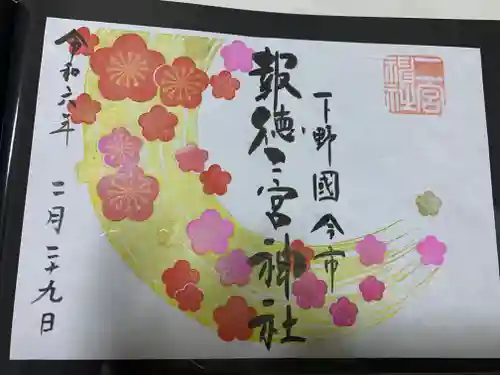 下野國今市
報徳二宮神社
令和六年
二月二十九日
二宮
神社